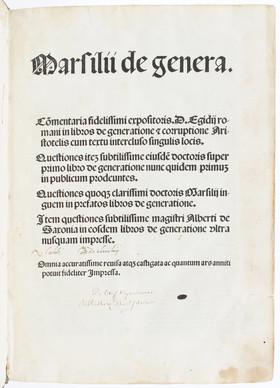 Marsilii de genera.
Cõmentaria fidelissimi expositoris. D. Egidij ro
mani in libros de generatione ⁊ corruptione Ari
stotelis cum textu intercluso singulis locis.
Questiones itez subtilissime eiusdẽ doctoris super
primo libro de generatione nunc quidem primuz
in publicum prodeuntes.
Questiones quoqz clarissimi doctoris Marsilij in
guem in prefatos libros de generatione.
Item questiones subtilissime magistri Alberti de
Saxonia in eosdem libros de generatione vltra
nusquam impresse.
Omnia accuratissime reuisa atqz castigata ac quantum ars anniti
potuit fideliter Impressa.